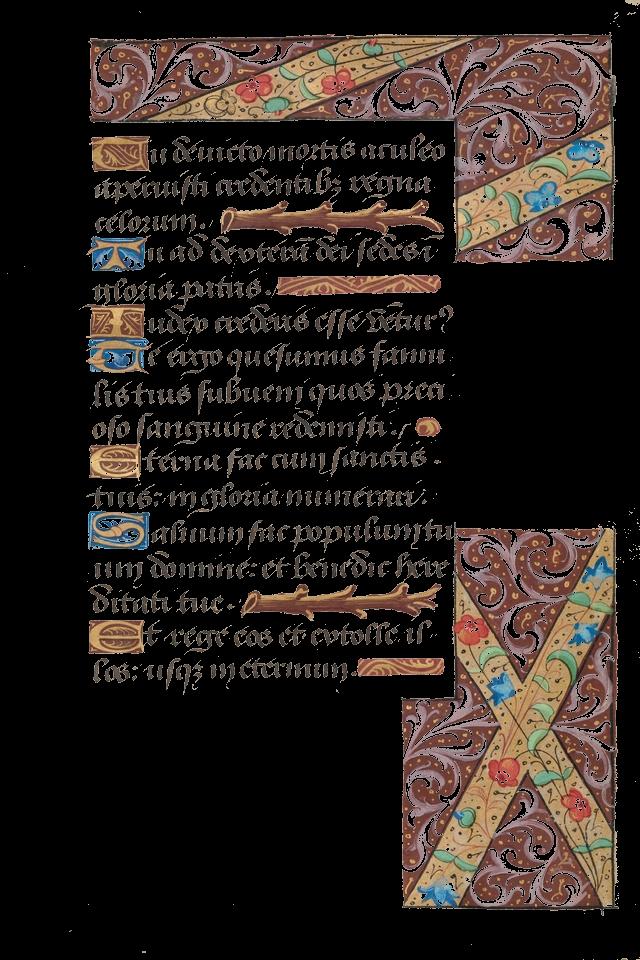 Tu deuicto mortis aculeo
aperuisti credentibꝫ regna
celorum.
Tu ad dexterā dei sedes ī
gloria patris.
Iudex crederis esse vētur9
Te ergo quesumus famu
lis tuis subueni quos preci
oso sanguine redemisti.
Eterna fac cum sanctis
tuis: in gloria numerari.
Saluum fac populum tu
um domine: et benedic here
ditati tue.
Et rege eos et extolle il
los: usqꝫ in eternum.